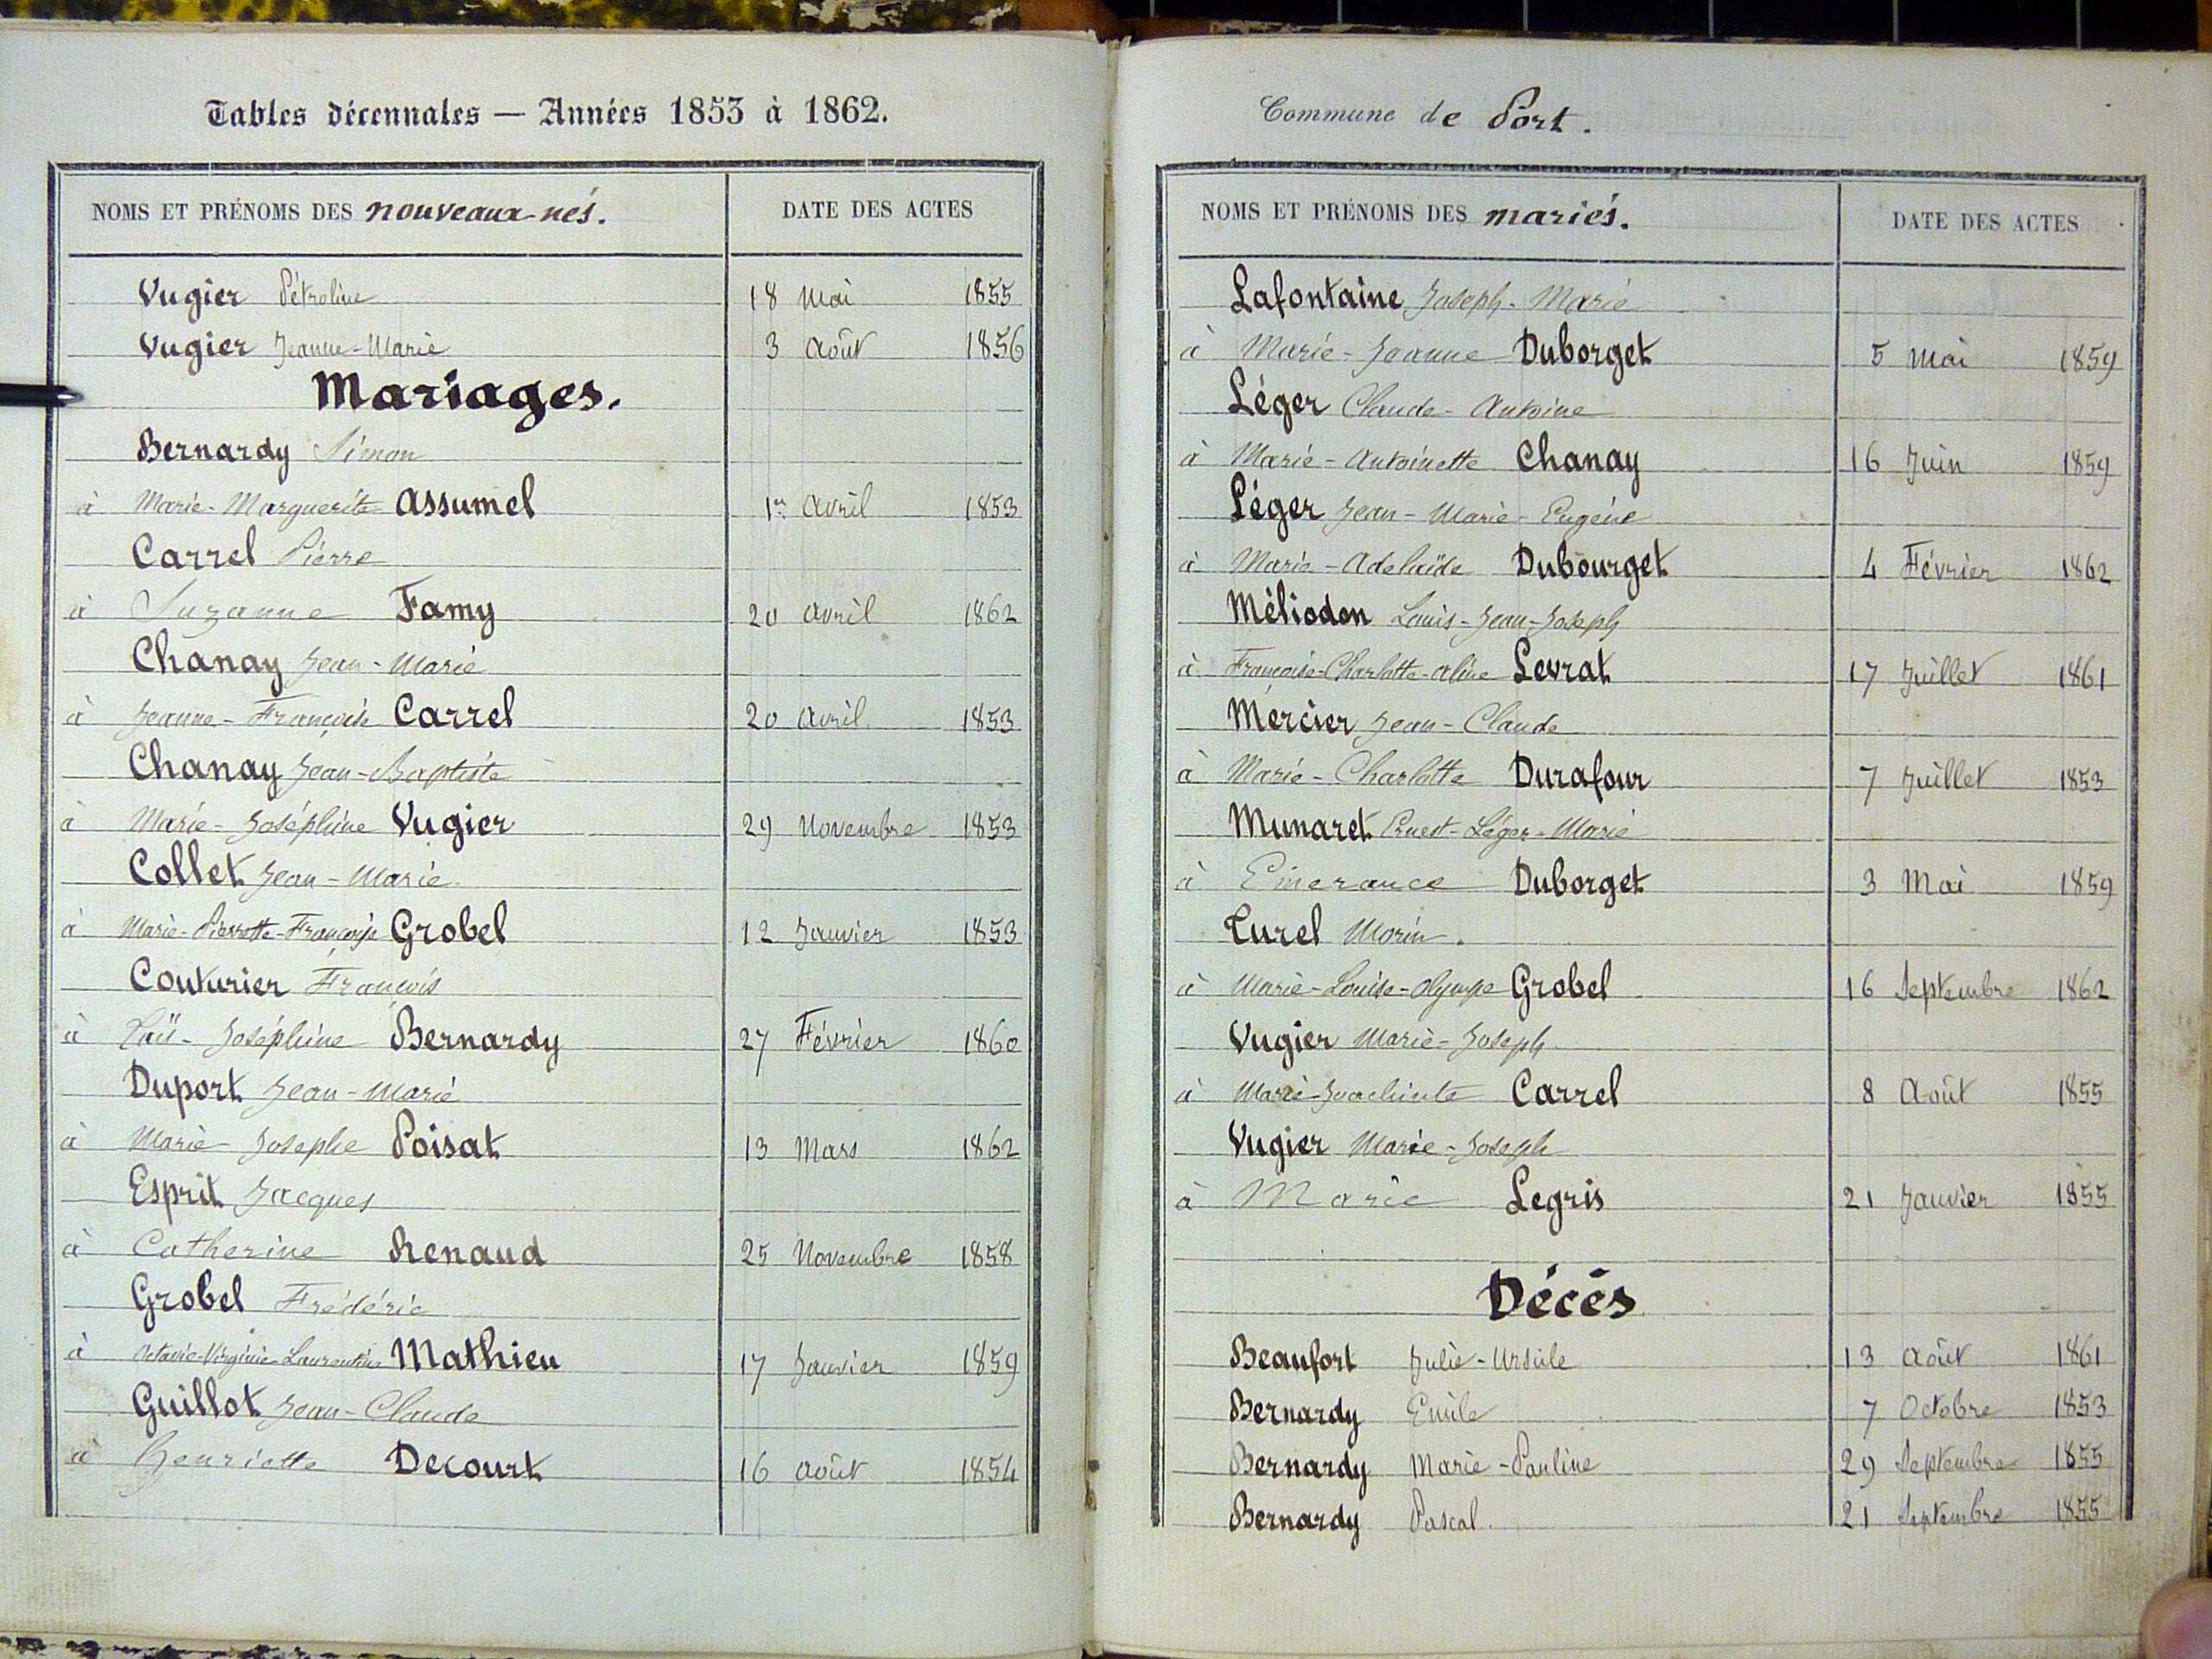 Tables décennales — Années 1853 à 1862.
NOMS ET PRÉNOMS DES nouveaux-nés. DATE DES ACTES
Vugier Pétroline 18 Mai 1855
Vugier Jeanne-Marie 3 Août 1856
Mariages.
Bernardy Simon
à Marie-Marguerite Assumel 1er Avril 1853
Carrel Pierre
à Suzanne Famy 20 Avril 1862
Chanay Jean-Marie
à Jeanne-Françoise Carrel 20 Avril 1853
Chanay Jean-Baptiste
à Marie-Joséphine Vugier 29 Novembre 1853
Collet Jean-Marie
à Marie-Pierrette-Françoise Grobel 12 Janvier 1853
Couturier François
à Joséphine Bernardy 27 Février 1860
Duport Jean-Marie
à Marie-Josephe Poisat 13 Mars 1862
Esprit Jacques
à Catherine Renaud 25 Novembre 1858
Grobel Frédéric
à Octavie-Virginie-Laurentine Mathieu 17 Janvier 1859
Guillot Jean-Claude
à Henriette Decourt 16 Août 1854
Commune de Port.
NOMS ET PRÉNOMS DES mariés. DATE DES ACTES
Lafontaine Joseph-Marie
à Marie-Jeanne Duborget 5 Mai 1859
Léger Claude-Antoine
à Marie-Antoinette Chanay 16 Juin 1859
Léger Jean-Marie-Eugène
à Marie-Adelaïde Dubourget 4 Février 1862
Méliodon Louis-Jean-Joseph
à Françoise-Charlotte-Aline Levrat 17 Juillet 1861
Mercier Jean-Claude
à Marie-Charlotte Durafour 7 Juillet 1853
Munaret Ernest-Léger-Marie
à Emerance Duborget 3 Mai 1859
Turel Morin.
à Marie-Louise-Olympe Grobel 16 Septembre 1862
Vugier Marie-Joseph
à Marie-Jvachinte Carrel 8 Août 1855
Vugier Marie-Joseph
à Marie Legris 21 Janvier 1855
Décès
Beaufort Julie-Ursule 13 Août 1861
Bernardy Emile 7 Octobre 1853
Bernardy Marie-Pauline 29 Septembre 1855
Bernardy Pascal. 21 Septembre 1855